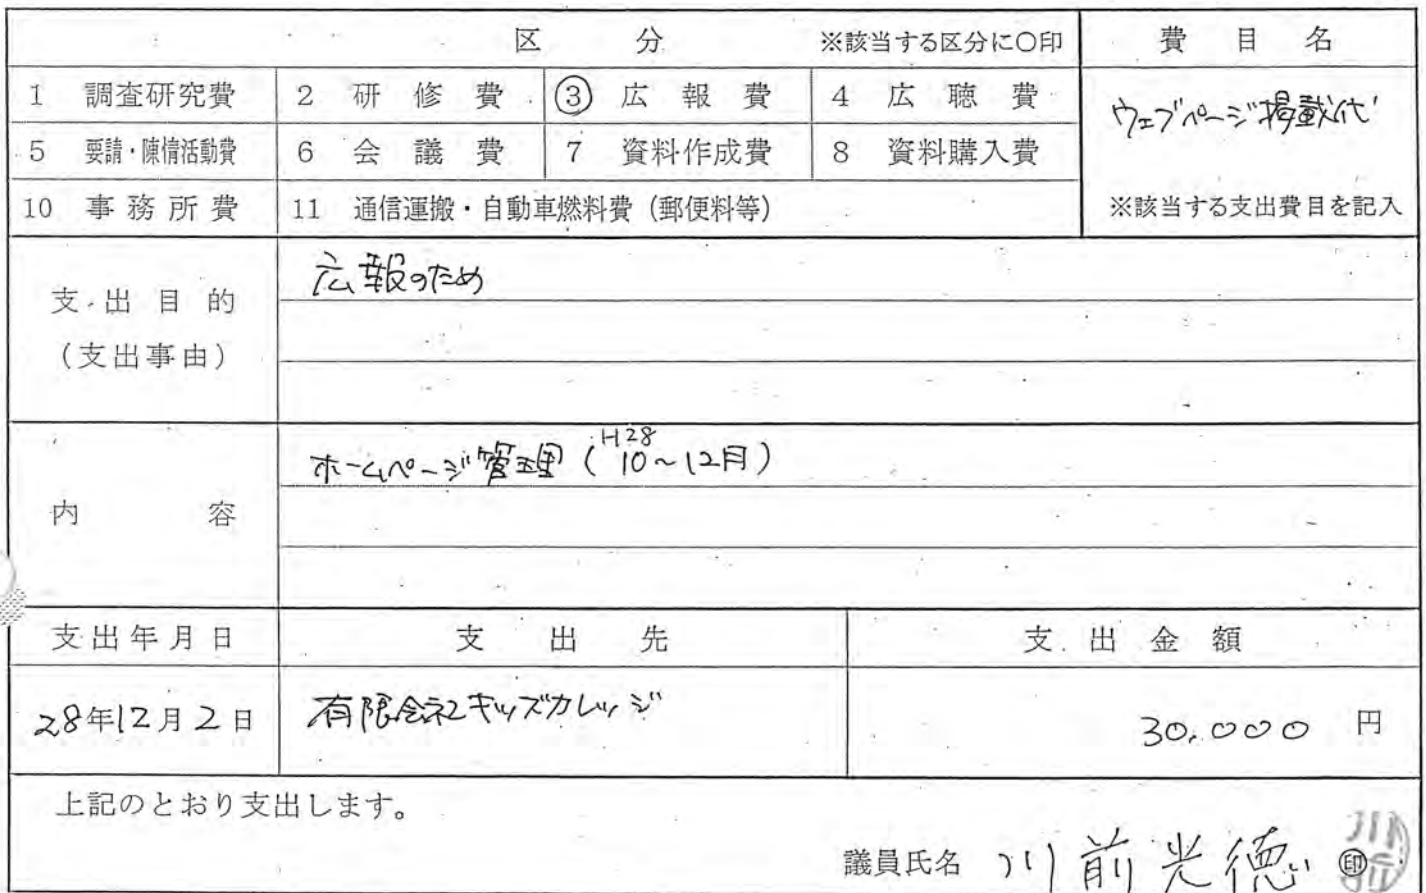 区 分 ※該当する区分に○印 費目名
1 調査研究費 2 研修費 ③ 広報費 4 広聴費 ウェブページ掲載代
5 要請・陳情活動費 6 会議費 7 資料作成費 8 資料購入費
10 事務所費 11 通信運搬・自動車燃料費(郵便料等) ※該当する支出費目を記入
支出目的
(支出事由)
広報のため
内 容
H28
ホームページ管理(10~12月)
支出年月日 支出先 支出金額
28年12月2日 有限会社キッズカレッジ 30,000 円
上記のとおり支出します。
議員氏名 川前光徳 ㊞